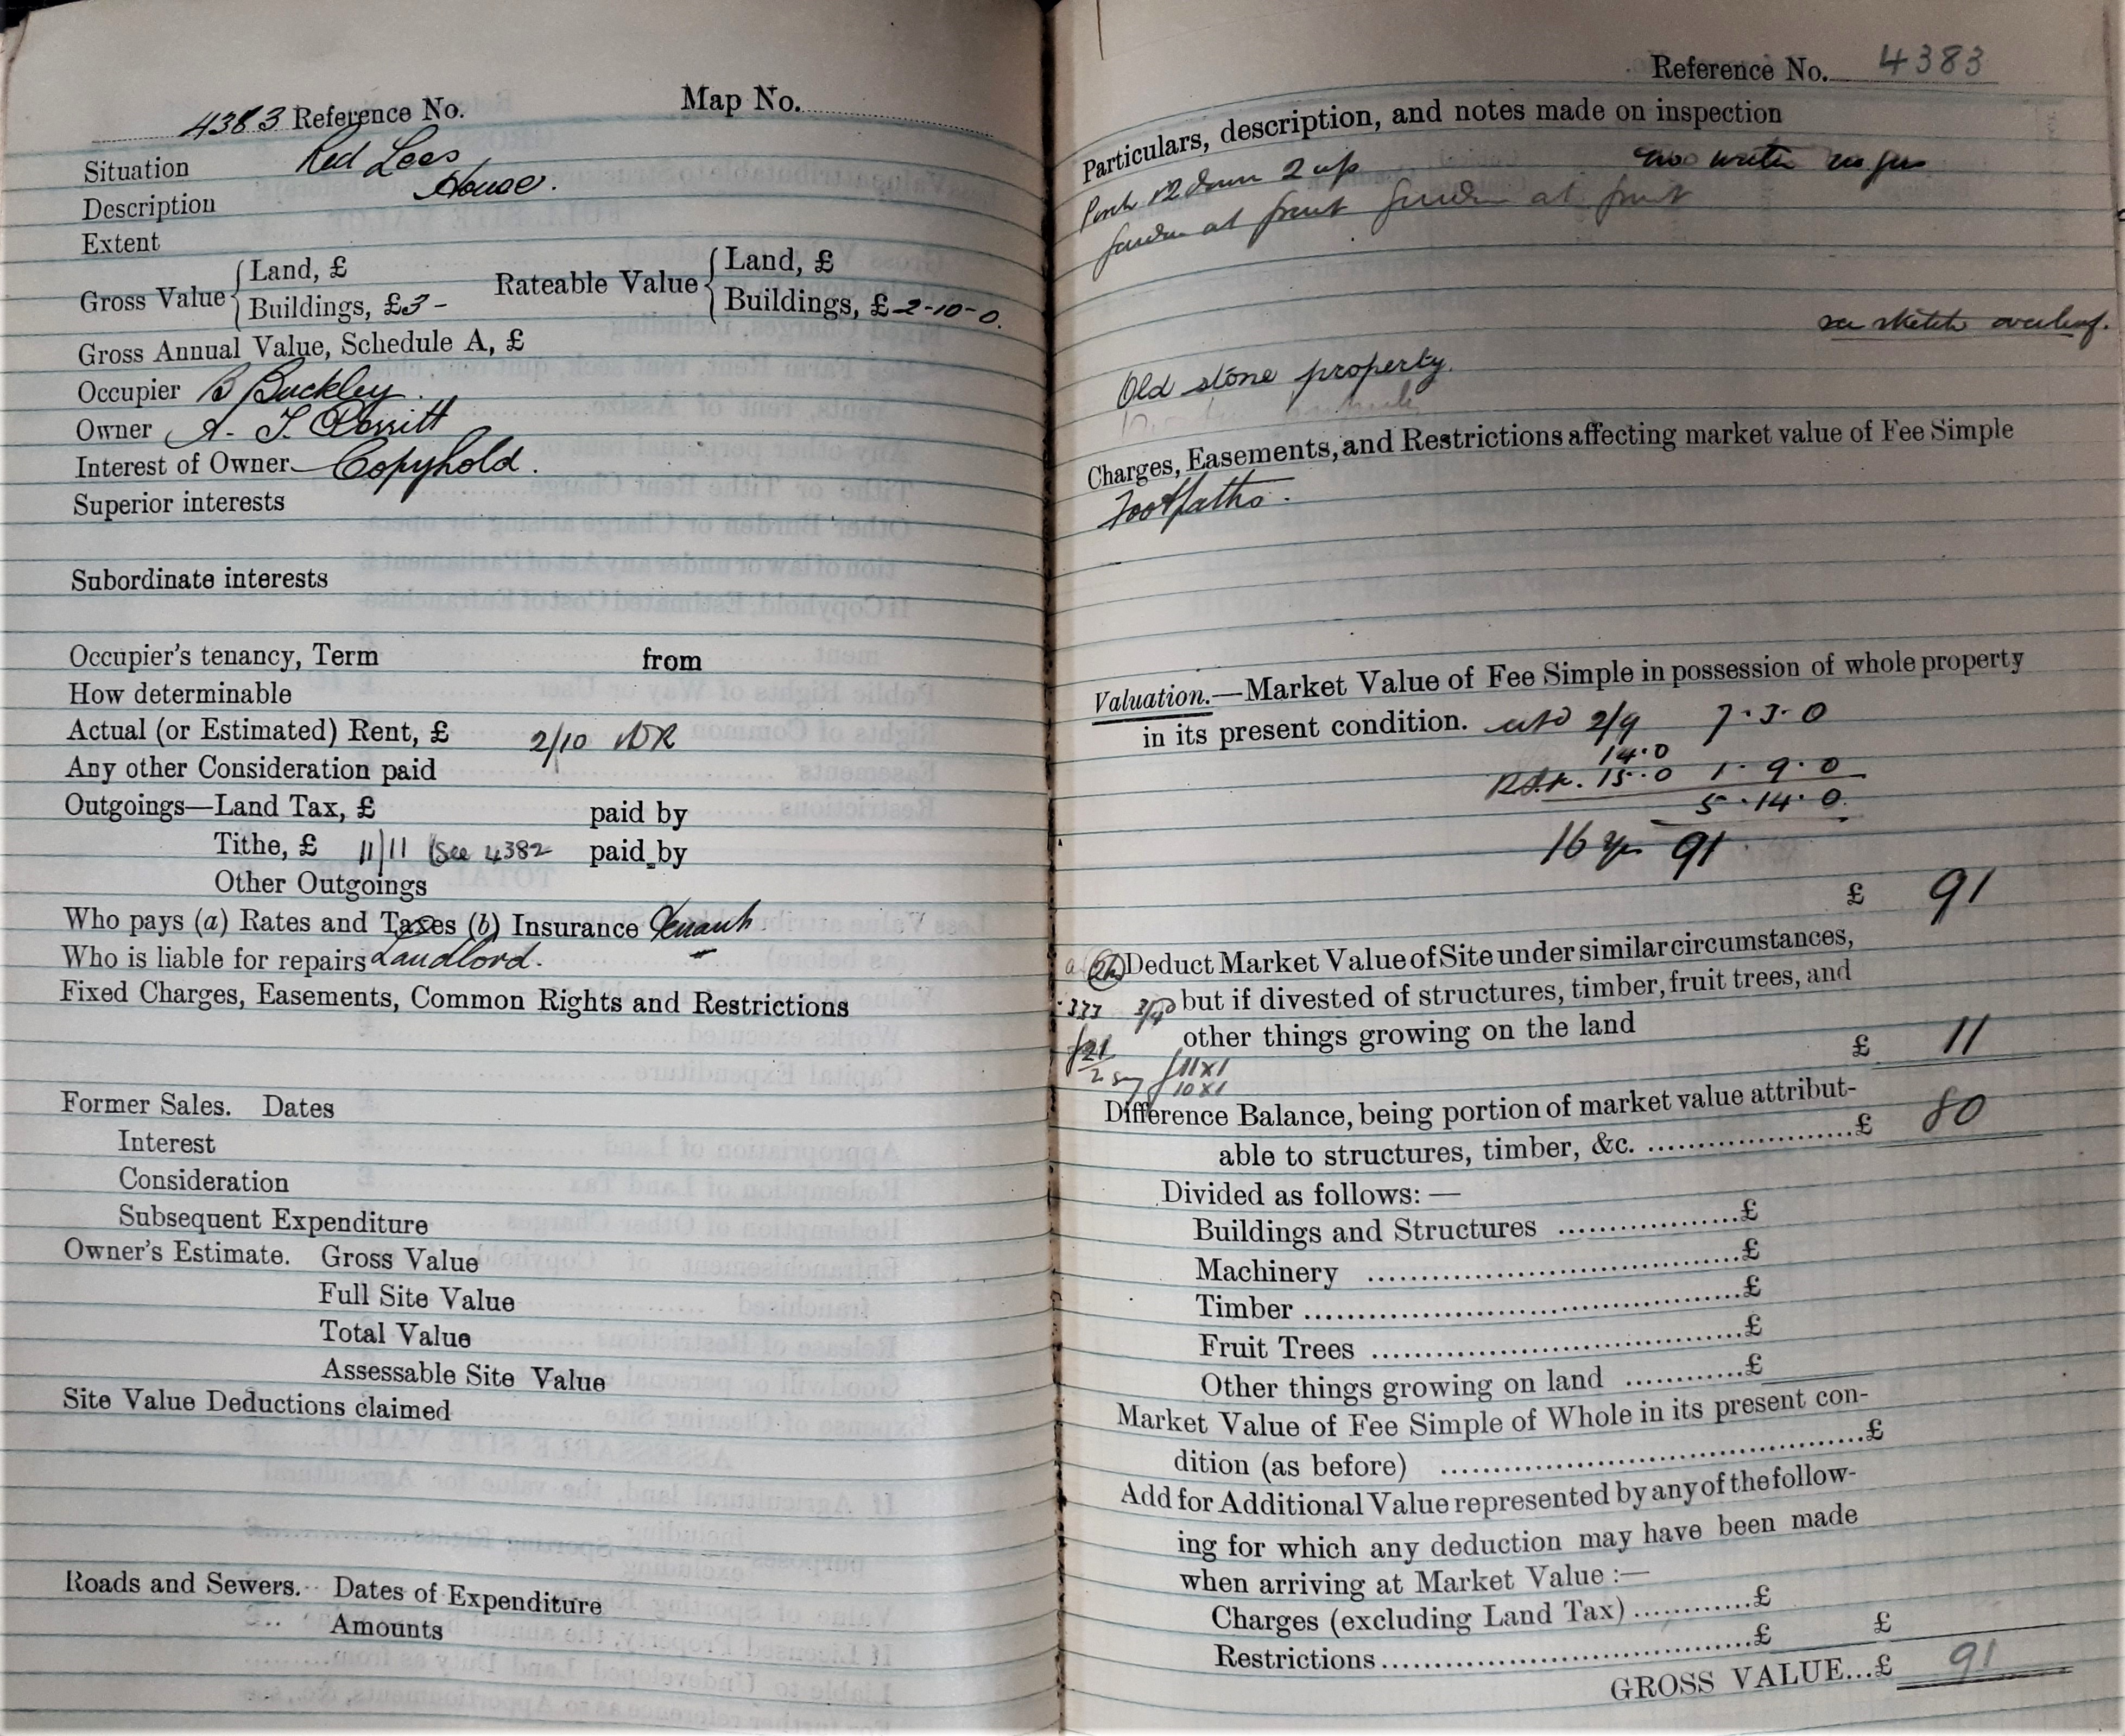 4383 Reference No. Map No.
Situation Red Lees
Description House.
Extent
Gross Value { Land, £
Buildings, £3 -
Rateable Value { Land, £
Buildings, £ 2-10-0.
Gross Annual Value, Schedule A, £
Occupier B Buckley.
Owner A. T. Porritt
Interest of Owner Copyhold.
Superior interests
Subordinate interests
Occupier's tenancy, Term from
How determinable
Actual (or Estimated) Rent, £ 2/10
Any other Consideration paid
Outgoings—Land Tax, £ paid by
Tithe, £ 11/11 (See 4382 paid by
Other Outgoings
Who pays (a) Rates and Taxes (b) Insurance Tenant
Who is liable for repairs Landlord.
Fixed Charges, Easements, Common Rights and Restrictions
Former Sales. Dates
Interest
Consideration
Subsequent Expenditure
Owner's Estimate. Gross Value
Full Site Value
Total Value
Assessable Site Value
Site Value Deductions claimed
Roads and Sewers. Dates of Expenditure
Amounts
Reference No. 4383
Particulars, description, and notes made on inspection
2 down 2 up no water no gas
garden at front garden at front
see sketch overleaf.
Old stone property.
Charges, Easements, and Restrictions affecting market value of Fee Simple
Footpaths.
Valuation.—Market Value of Fee Simple in possession of whole property
in its present condition. 2/9 7.3.0
14.0
15.0 1.9.0
5.14.0
16 yrs 91
£ 91
Deduct Market Value of Site under similar circumstances,
but if divested of structures, timber, fruit trees, and
other things growing on the land
£ 11
11x1
10x1
Difference Balance, being portion of market value attribut-
able to structures, timber, &c. ....................£ 80
Divided as follows: —
Buildings and Structures ..................£
Machinery ..................£
Timber ..................£
Fruit Trees ..................£
Other things growing on land ............£
Market Value of Fee Simple of Whole in its present con-
dition (as before) ..................£
Add for Additional Value represented by any of the follow-
ing for which any deduction may have been made
when arriving at Market Value :—
Charges (excluding Land Tax) ............£
Restrictions ..................£ £
GROSS VALUE...£ 91